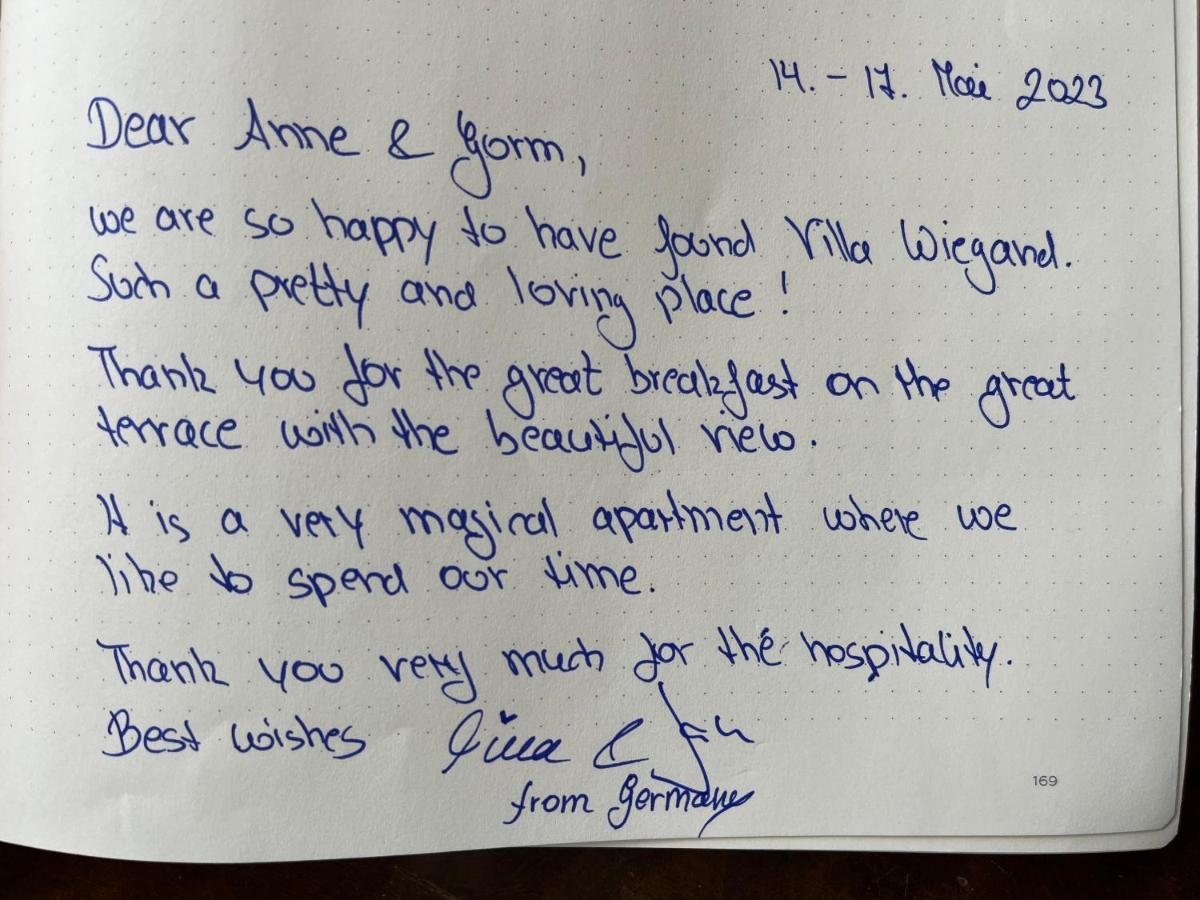 14. – 17. Mai 2023
Dear Anne & Gorm,
we are so happy to have found Villa Wiegand.
Such a pretty and loving place!
Thank you for the great breakfast on the great
terrace with the beautiful view.
It is a very magical apartment where we
like to spend our time.
Thank you very much for the hospitality.
Best wishes &
from Germany
169